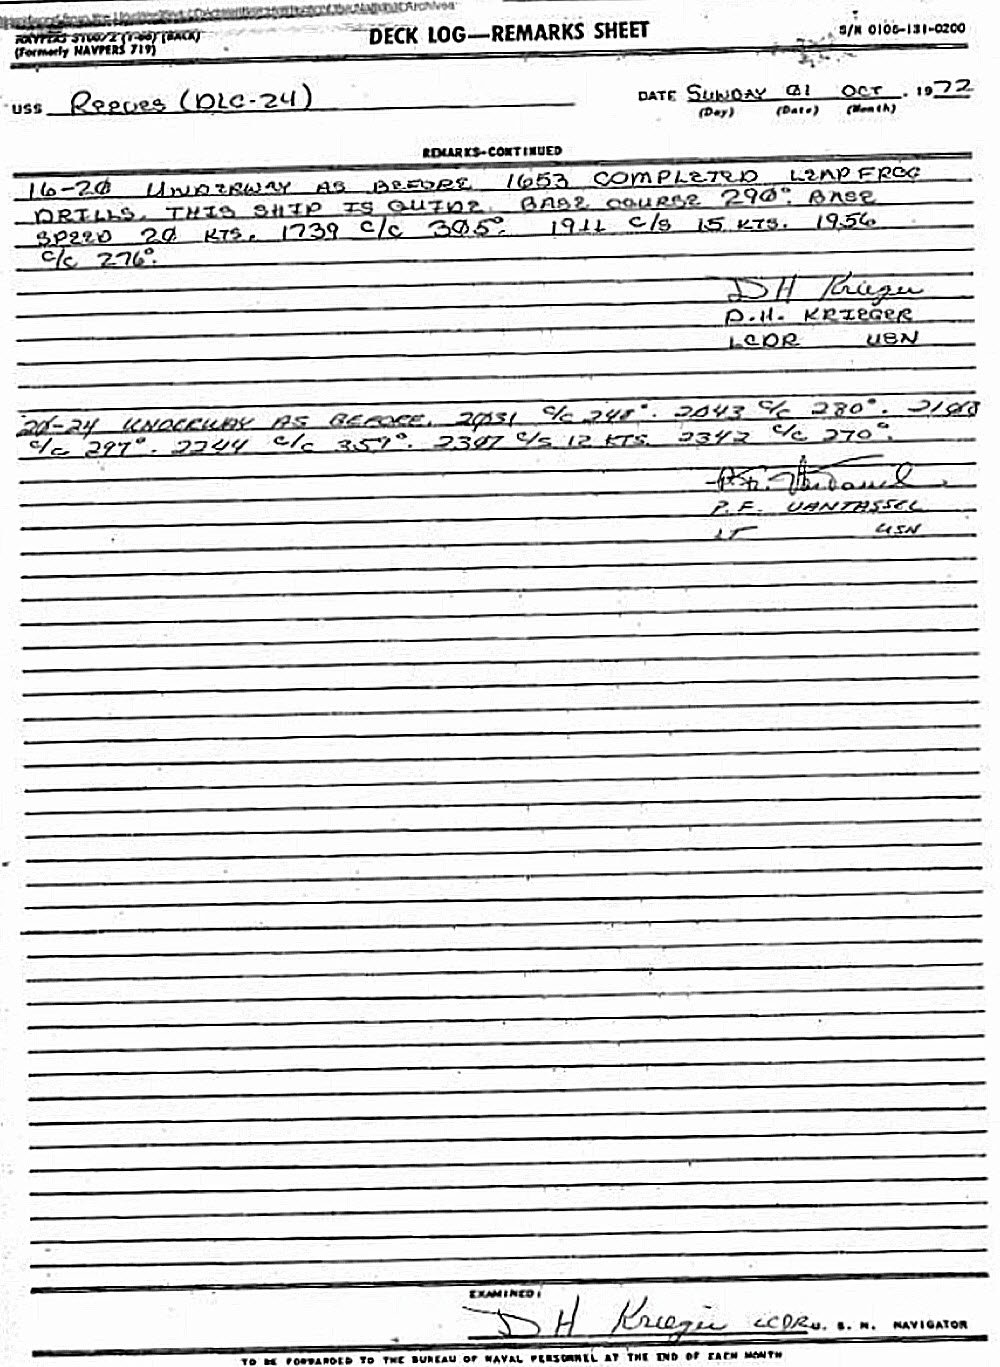 Reproduced from the Unclassified / Declassified Holdings of the National Archives
NAVPERS 3100/2 (1-68) (BACK)
(Formerly NAVPERS 719)
DECK LOG—REMARKS SHEET
S/N 0106-131-0200
USS Reeves (DLG-24)
DATE SUNDAY 01 OCT , 1972
(Day) (Date) (Month)
REMARKS-CONTINUED
16-20 UNDERWAY AS BEFORE 1653 COMPLETED LEAP FROG
DRILLS. THIS SHIP IS GUIDE. BASE COURSE 290°. BASE
SPEED 20 KTS. 1739 C/C 305°. 1911 C/S 15 KTS. 1956
C/C 276°.
D H Krieger
D.H. KRIEGER
LCDR USN
20-24 UNDERWAY AS BEFORE. 2031 C/C 248°. 2043 C/C 280°. 2108
C/C 297°. 2244 C/C 359°. 2307 C/S 12 KTS. 2342 C/C 270°.
P.F. VANTASSEL
LT USN
EXAMINED:
D H Krieger LCDR U. S. N. NAVIGATOR
TO BE FORWARDED TO THE BUREAU OF NAVAL PERSONNEL AT THE END OF EACH MONTH